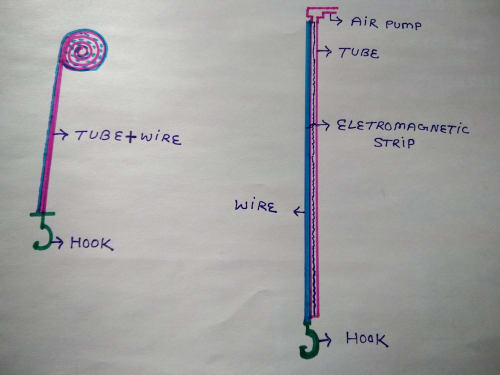 TUBE+WIRE
HOOK
AIR PUMP
TUBE
ELETROMAGNETIC
STRIP
WIRE
HOOK